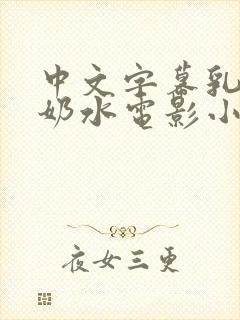 中文字幕乳
奶水电影小
夜女三更